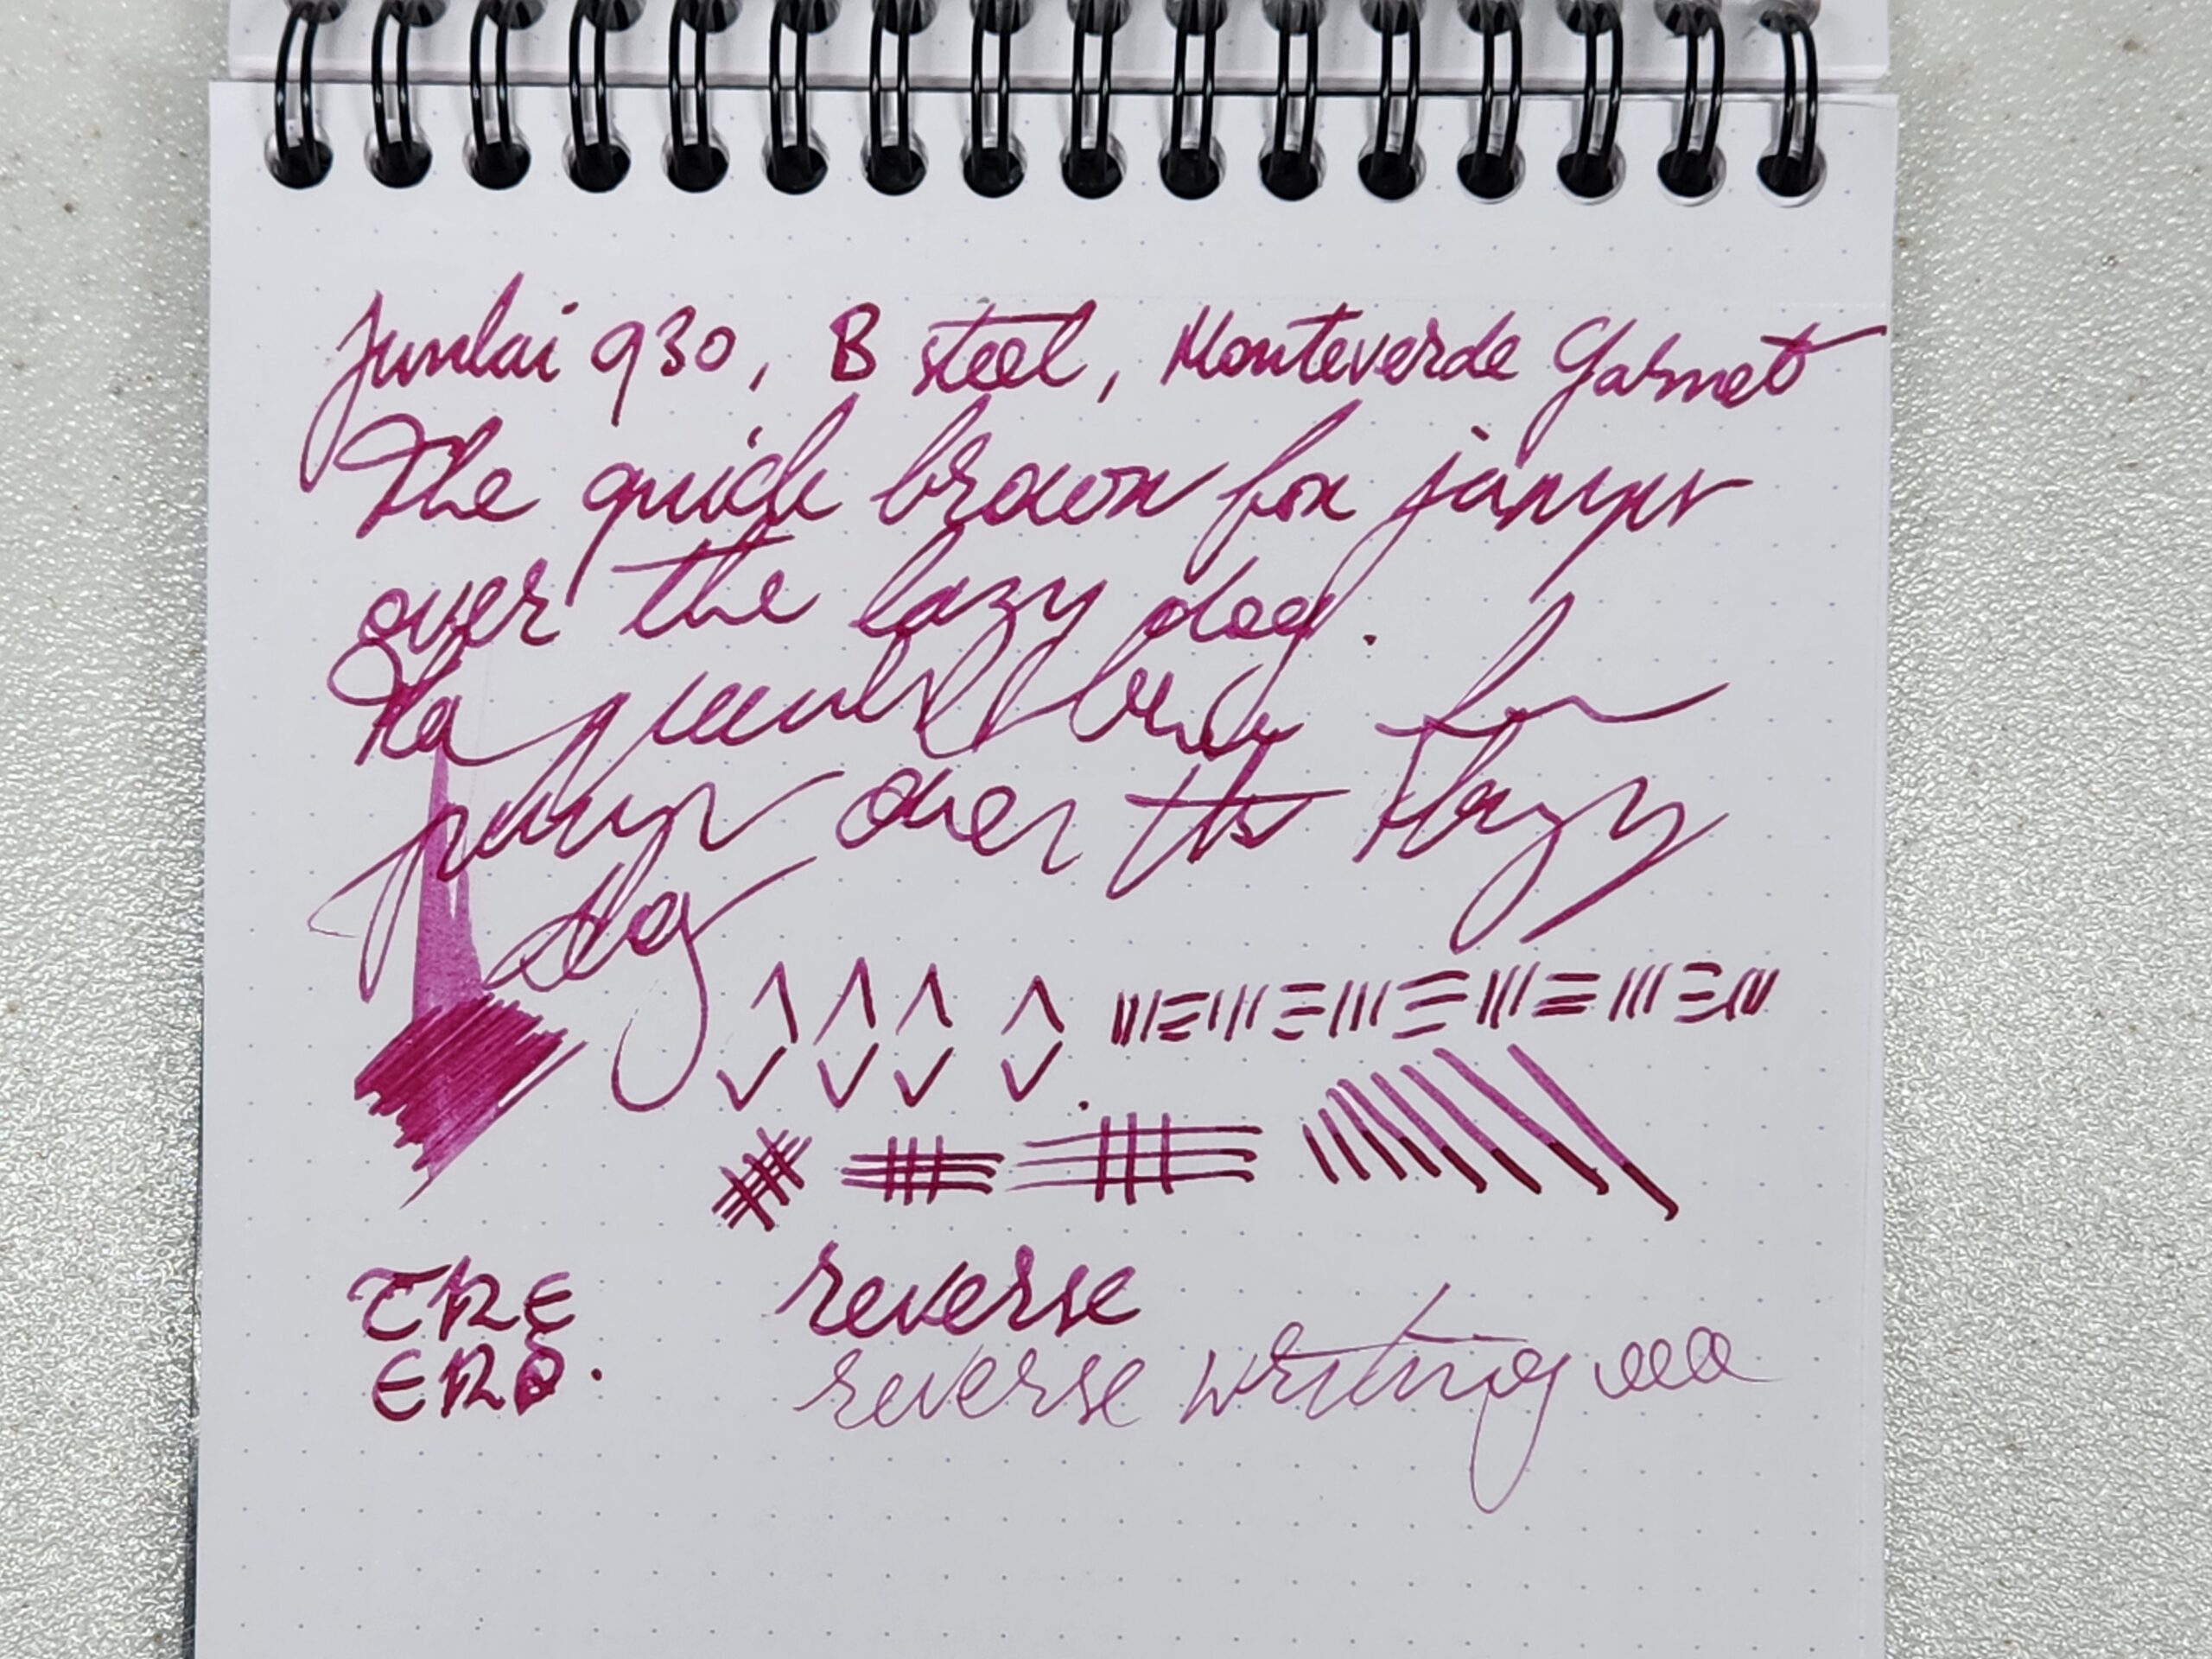 Junlai 930, B steel, Monteverde Garnet
The quick brown fox jumps
over the lazy dog.
The quick brown fox
jumps over the lazy
dog
THE reverse
END. reverse writing